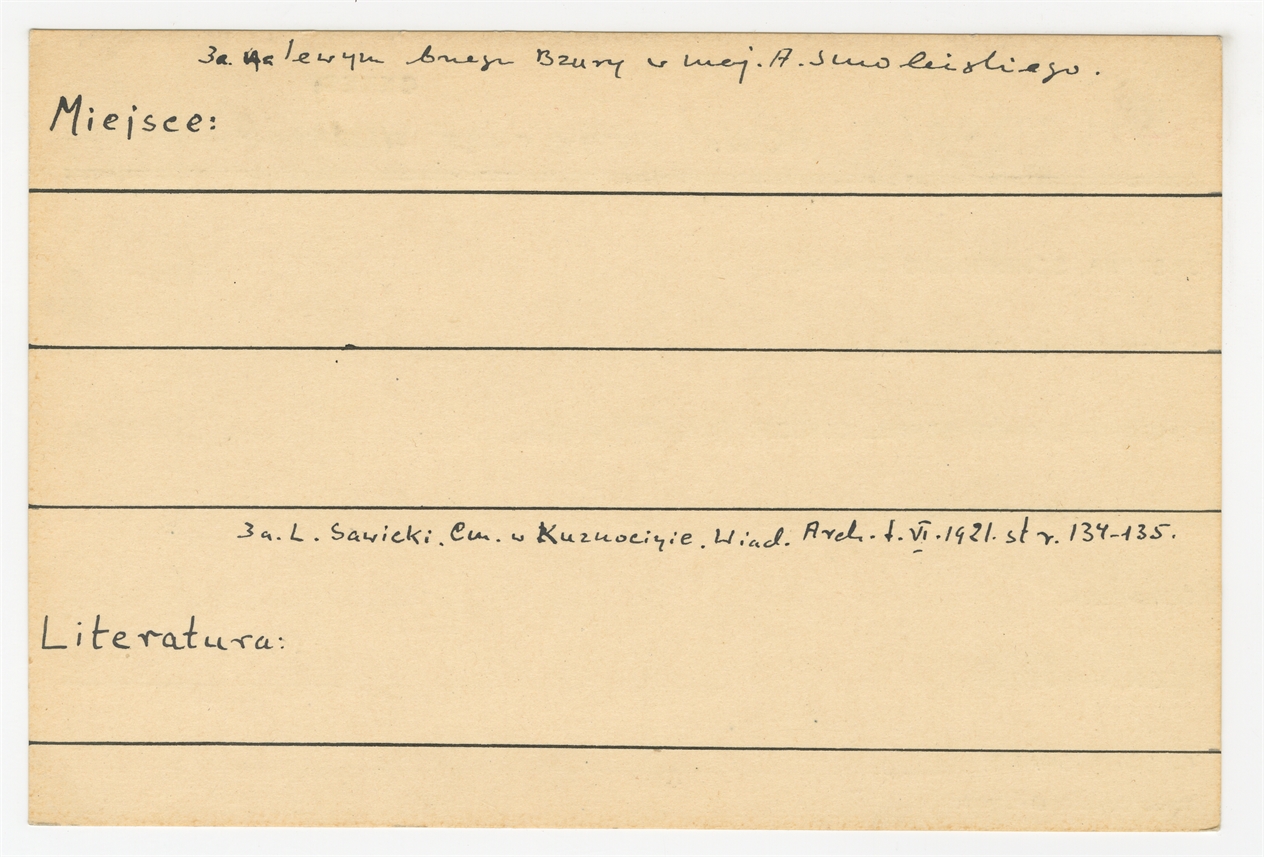 3a. Na lewym brzegu Bzury w maj. A. Smoleńskiego.
Miejsce:
3a. L. Sawicki. Cm. w Kuznocizie. Wiad. Arch. t. VI. 1921. str. 134-135.
Literatura: